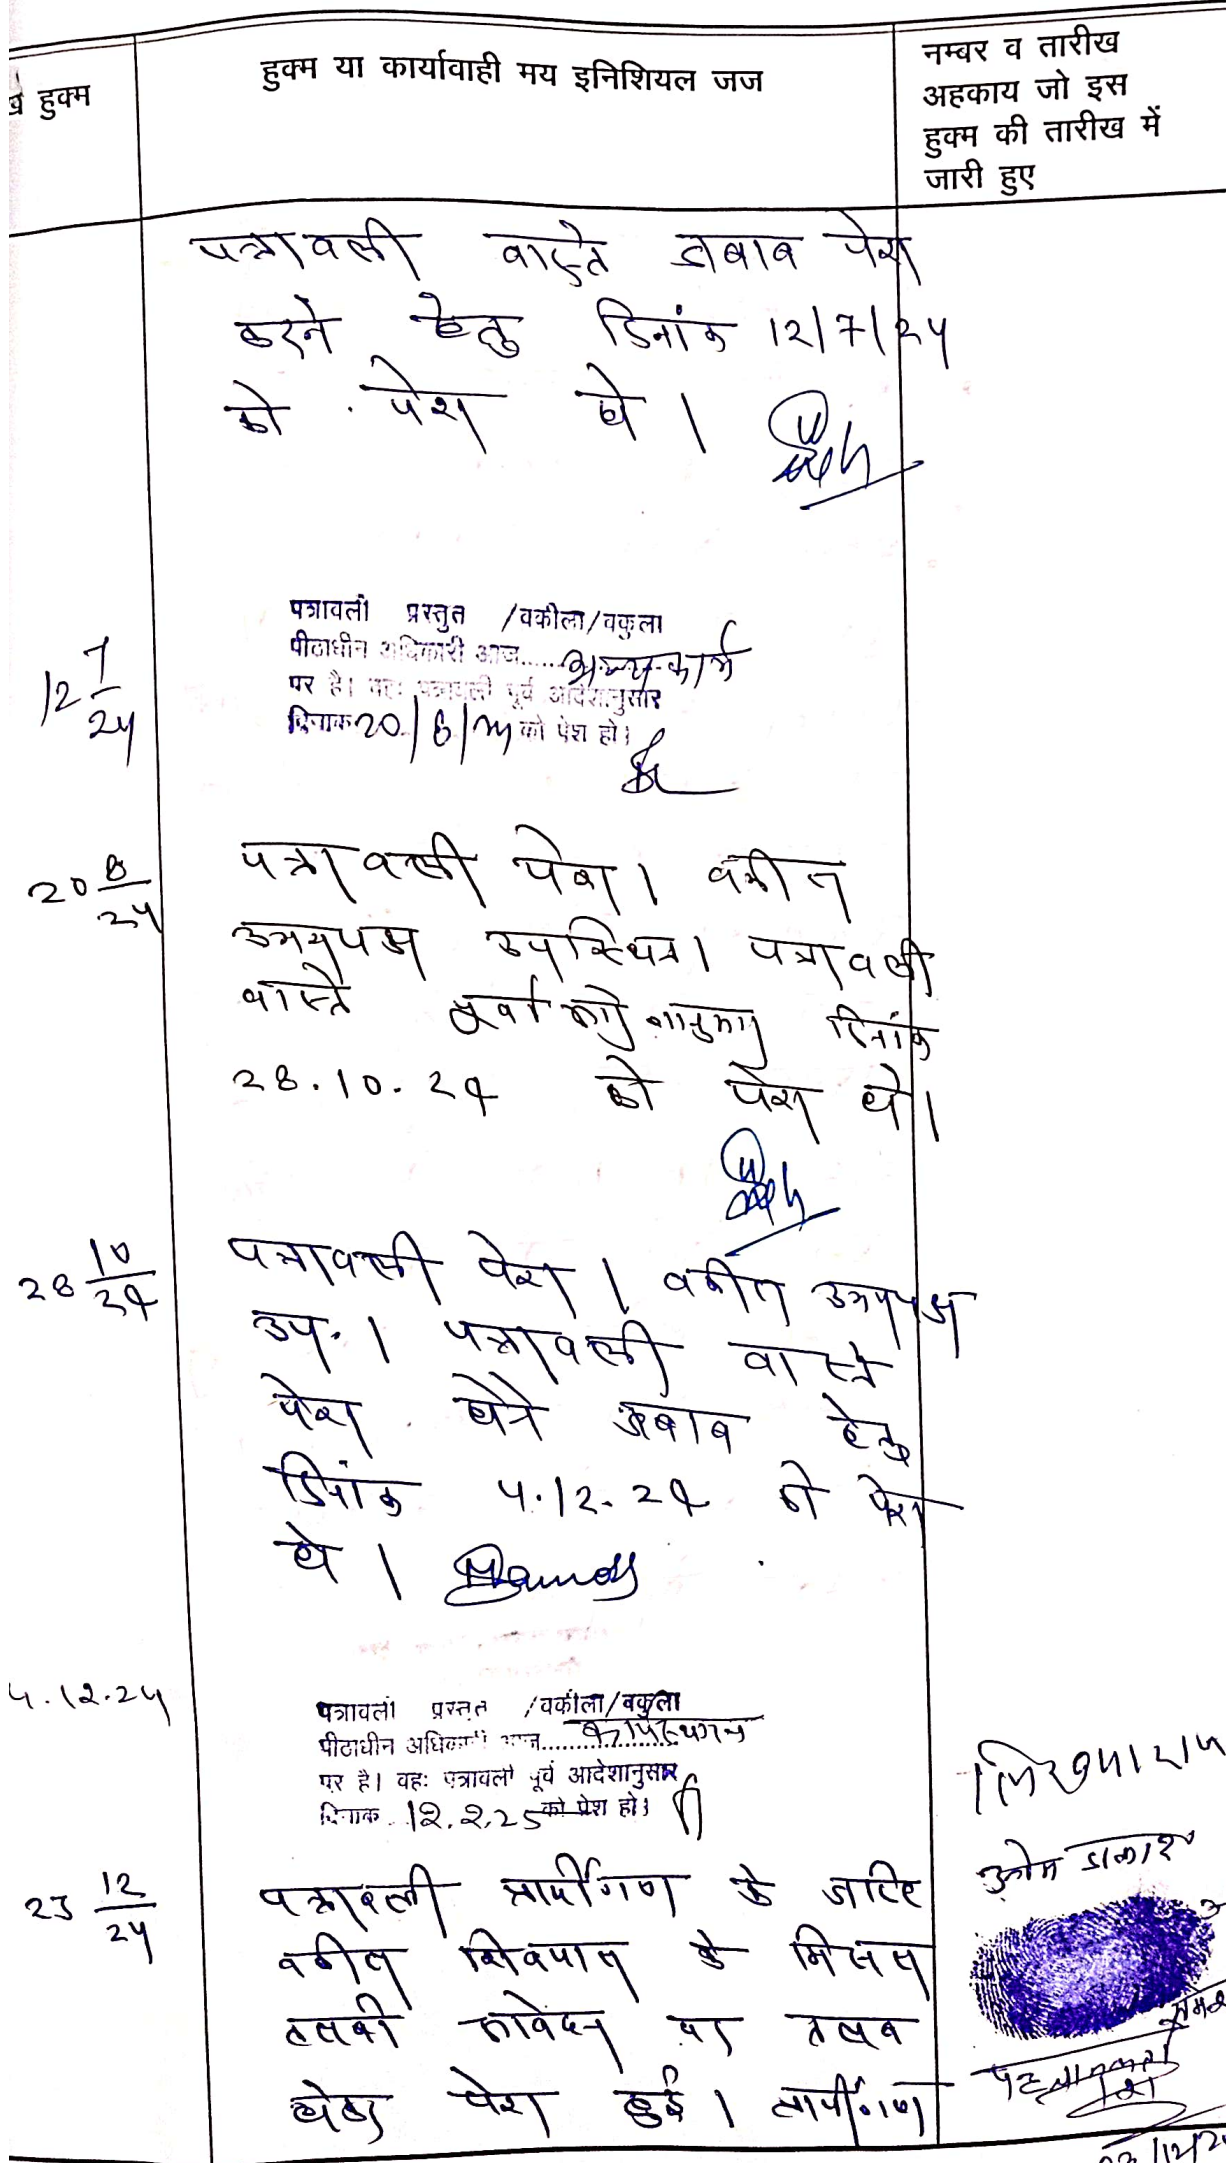 हुक्म
हुक्म या कार्यावाही मय इनिशियल जज
नम्बर व तारीख
अहकाय जो इस
हुक्म की तारीख में
जारी हुए
पत्रावली वास्ते जबाब पेश
करने हेतु दिनांक 12/7/24
को पेश हो।
12 7/24
पत्रावली प्रस्तुत /वकीला/वकुला
पीठाधीन अधिकारी आज......अन्य कार्य
पर है। वहः पत्रावली पूर्व आदेशानुसार
दिनाक 20/8/24 को पेश हो।
20 8/24
पत्रावली पेश। वकील
उभयपक्ष उपस्थित। पत्रावली
वास्ते दिनांक
28.10.24 को पेश हो।
28 10/24
पत्रावली पेश। वकील उभयपक्ष
उप.। पत्रावली वास्ते
पेश होने जबाब हेतु
दिनांक 4.12.24 को पेश
हो।
4.12.24
पत्रावली प्रस्तुत /वकीला/वकुला
पीठाधीन अधिकारी आज...............
पर है। वहः पत्रावली पूर्व आदेशानुसार
दिनाक 12.2.25 को पेश हो।
23 12/24
पत्रावली प्रार्थीगण के जरिए
वकील शिवपाल के मिसल
तलबी आवेदन पर तलब
होकर पेश हुई। प्रार्थीगण